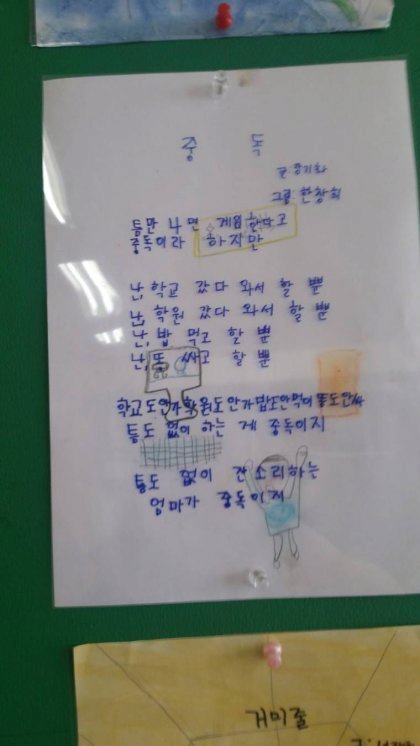 중 독
글 장기화
그림 한창희
틈만 나면 게임 한다고
중독이라 하지만
난, 학교 갔다 와서 할 뿐
난, 학원 갔다 와서 할 뿐
난, 밥 먹고 할 뿐
난, 똥 싸고 할 뿐
학교도안가학원도안가밥도안먹어똥도안싸
틈도 없이 하는 게 중독이지
틈도 없이 잔소리하는
엄마가 중독이지
거미줄